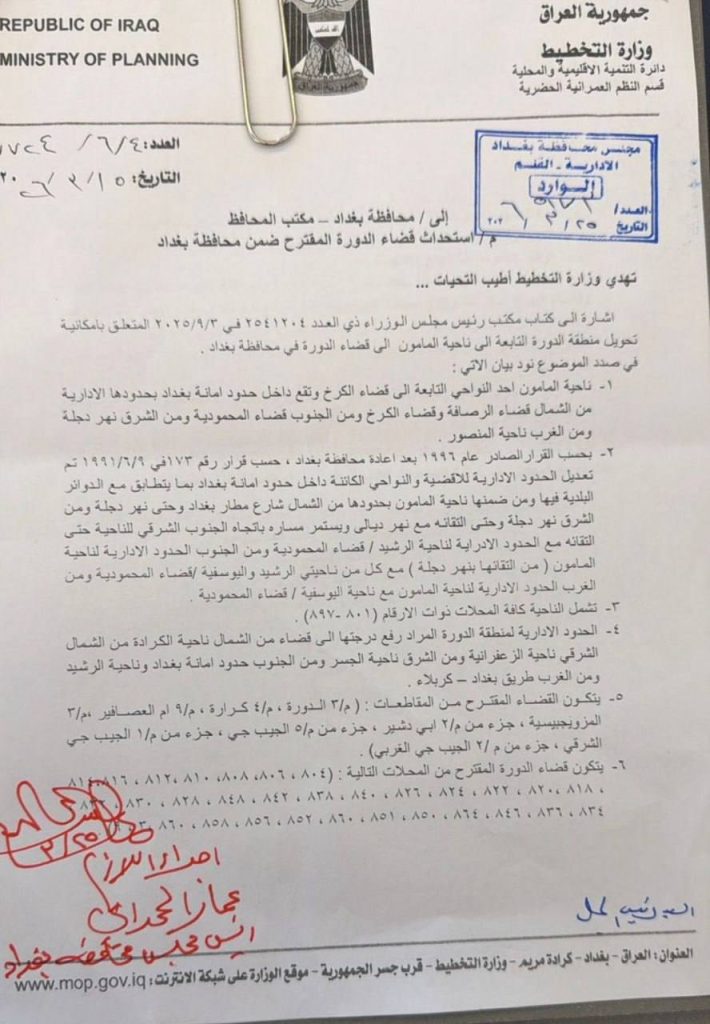 REPUBLIC OF IRAQ
MINISTRY OF PLANNING
جمهورية العراق
جمهورية العراق
وزارة التخطيط
دائرة التنمية الاقليمية والمحلية
قسم النظم العمرانية الحضرية
العدد: ٤/٦/
التاريخ: ١٥/٣/
مجلس محافظة بغداد
الادارية - القلم
الوارد
العدد/
التاريخ ٢٥/٣/
إلى / محافظة بغداد – مكتب المحافظ
م / استحداث قضاء الدورة المقترح ضمن محافظة بغداد
تهدي وزارة التخطيط أطيب التحيات ...
اشارة الى كتاب مكتب رئيس مجلس الوزراء ذي العدد ٢٥٤١٢٠٤ في ٢٠٢٥/٩/٣ المتعلق بامكانية
تحويل منطقة الدورة التابعة الى ناحية المامون الى قضاء الدورة في محافظة بغداد .
في صدد الموضوع نود بيان الاتي :
١- ناحية المامون احد النواحي التابعة الى قضاء الكرخ وتقع داخل حدود امانة بغداد بحدودها الادارية
من الشمال قضاء الرصافة وقضاء الكرخ ومن الجنوب قضاء المحمودية ومن الشرق نهر دجلة
ومن الغرب ناحية المنصور .
٢- بحسب القرار الصادر عام ١٩٩٦ بعد اعادة محافظة بغداد ، حسب قرار رقم ١٧٣ في ١٩٩١/٦/٩ تم
تعديل الحدود الادارية للاقضية والنواحي الكائنة داخل حدود امانة بغداد بما يتطابق مع الدوائر
البلدية فيها ومن ضمنها ناحية المامون بحدودها من الشمال شارع مطار بغداد وحتى نهر دجلة ومن
الشرق نهر دجلة وحتى التقائه مع نهر ديالى ويستمر مساره باتجاه الجنوب الشرقي للناحية حتى
التقائه مع الحدود الادراية لناحية الرشيد / قضاء المحمودية ومن الجنوب الحدود الادارية لناحية
المامون ( من التقائها بنهر دجلة ) مع كل من ناحيتي الرشيد واليوسفية /قضاء المحمودية ومن
الغرب الحدود الادارية لناحية المامون مع ناحية اليوسفية / قضاء المحمودية .
٣- تشمل الناحية كافة المحلات ذوات الارقام (٨٠١ -٨٩٧) .
٤- الحدود الادارية لمنطقة الدورة المراد رفع درجتها الى قضاء من الشمال ناحية الكرادة من الشمال
الشرقي ناحية الزعفرانية ومن الشرق ناحية الجسر ومن الجنوب حدود امانة بغداد وناحية الرشيد
ومن الغرب طريق بغداد – كربلاء .
٥- يتكون القضاء المقترح من المقاطعات : ( م/٣ الدورة ، م/٤ كرارة ، م/٩ ام العصافير ،م/٣
المزويجبيسية ، جزء من م/٢ ابي دشير ، جزء من م/٥ الجيب جي ، جزء من م/١ الجيب جي
الشرقي ، جزء من م /٢ الجيب جي الغربي) .
٦- يتكون قضاء الدورة المقترح من المحلات التالية : (٨٠٤ ، ٨٠٦ ،٨٠٨ ، ٨١٠ ،٨١٢ ، ٨١٦
، ٨١٨ ،٨٢٠ ، ٨٢٢ ، ٨٢٤ ، ٨٢٦ ، ٨٤٠ ، ٨٣٨ ، ٨٤٢ ، ٨٤٨ ، ٨٢٨ ، ٨٣٠ ،
٨٣٤ ، ٨٣٦ ، ٨٤٦ ، ٨٦٤ ، ٨٥٠ ،٨٥١ ، ٨٦٠ ، ٨٥٢ ، ٨٥٦ ، ٨٥٨ ، ٨٦٠
٣/٢٥
اجراء اللازم
عمار الحمداني
رئيس مجلس محافظة بغداد
العنوان: العراق - بغداد - كرادة مريم - وزارة التخطيط - قرب جسر الجمهورية - موقع الوزارة على شبكة الانترنت: www.mop.gov.iq